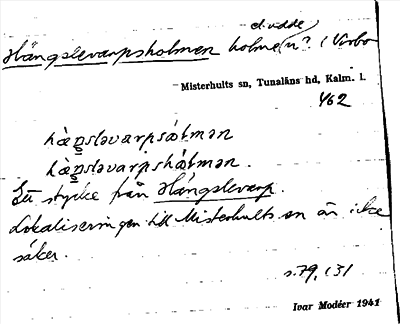 el. udde
Hängslevarpsholmen holme n? i Virbo
Misterhults sn, Tunaläns hd, Kalm. l.
462
hæŋslavarpsǽlman
hæŋslavarpshálman.
Ett stycke från Hängslevarp.
Lokaliseringen till Misterhults sn är icke
säker.
s. 79, 131
Ivar Modéer 1941